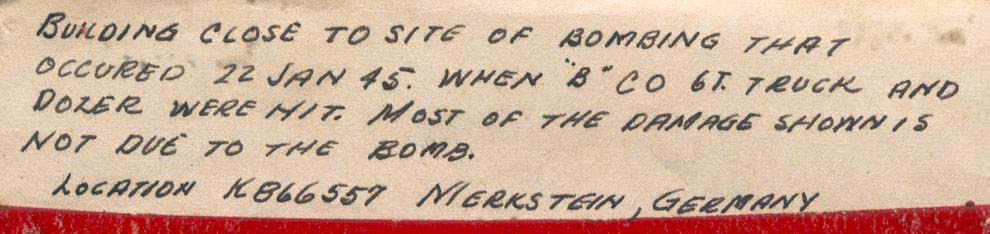 BUILDING CLOSE TO SITE OF BOMBING THAT
OCCURED 22 JAN 45. WHEN "B" CO 6T. TRUCK AND
DOZER WERE HIT. MOST OF THE DAMAGE SHOWN IS
NOT DUE TO THE BOMB.
LOCATION K866557 MERKSTEIN, GERMANY